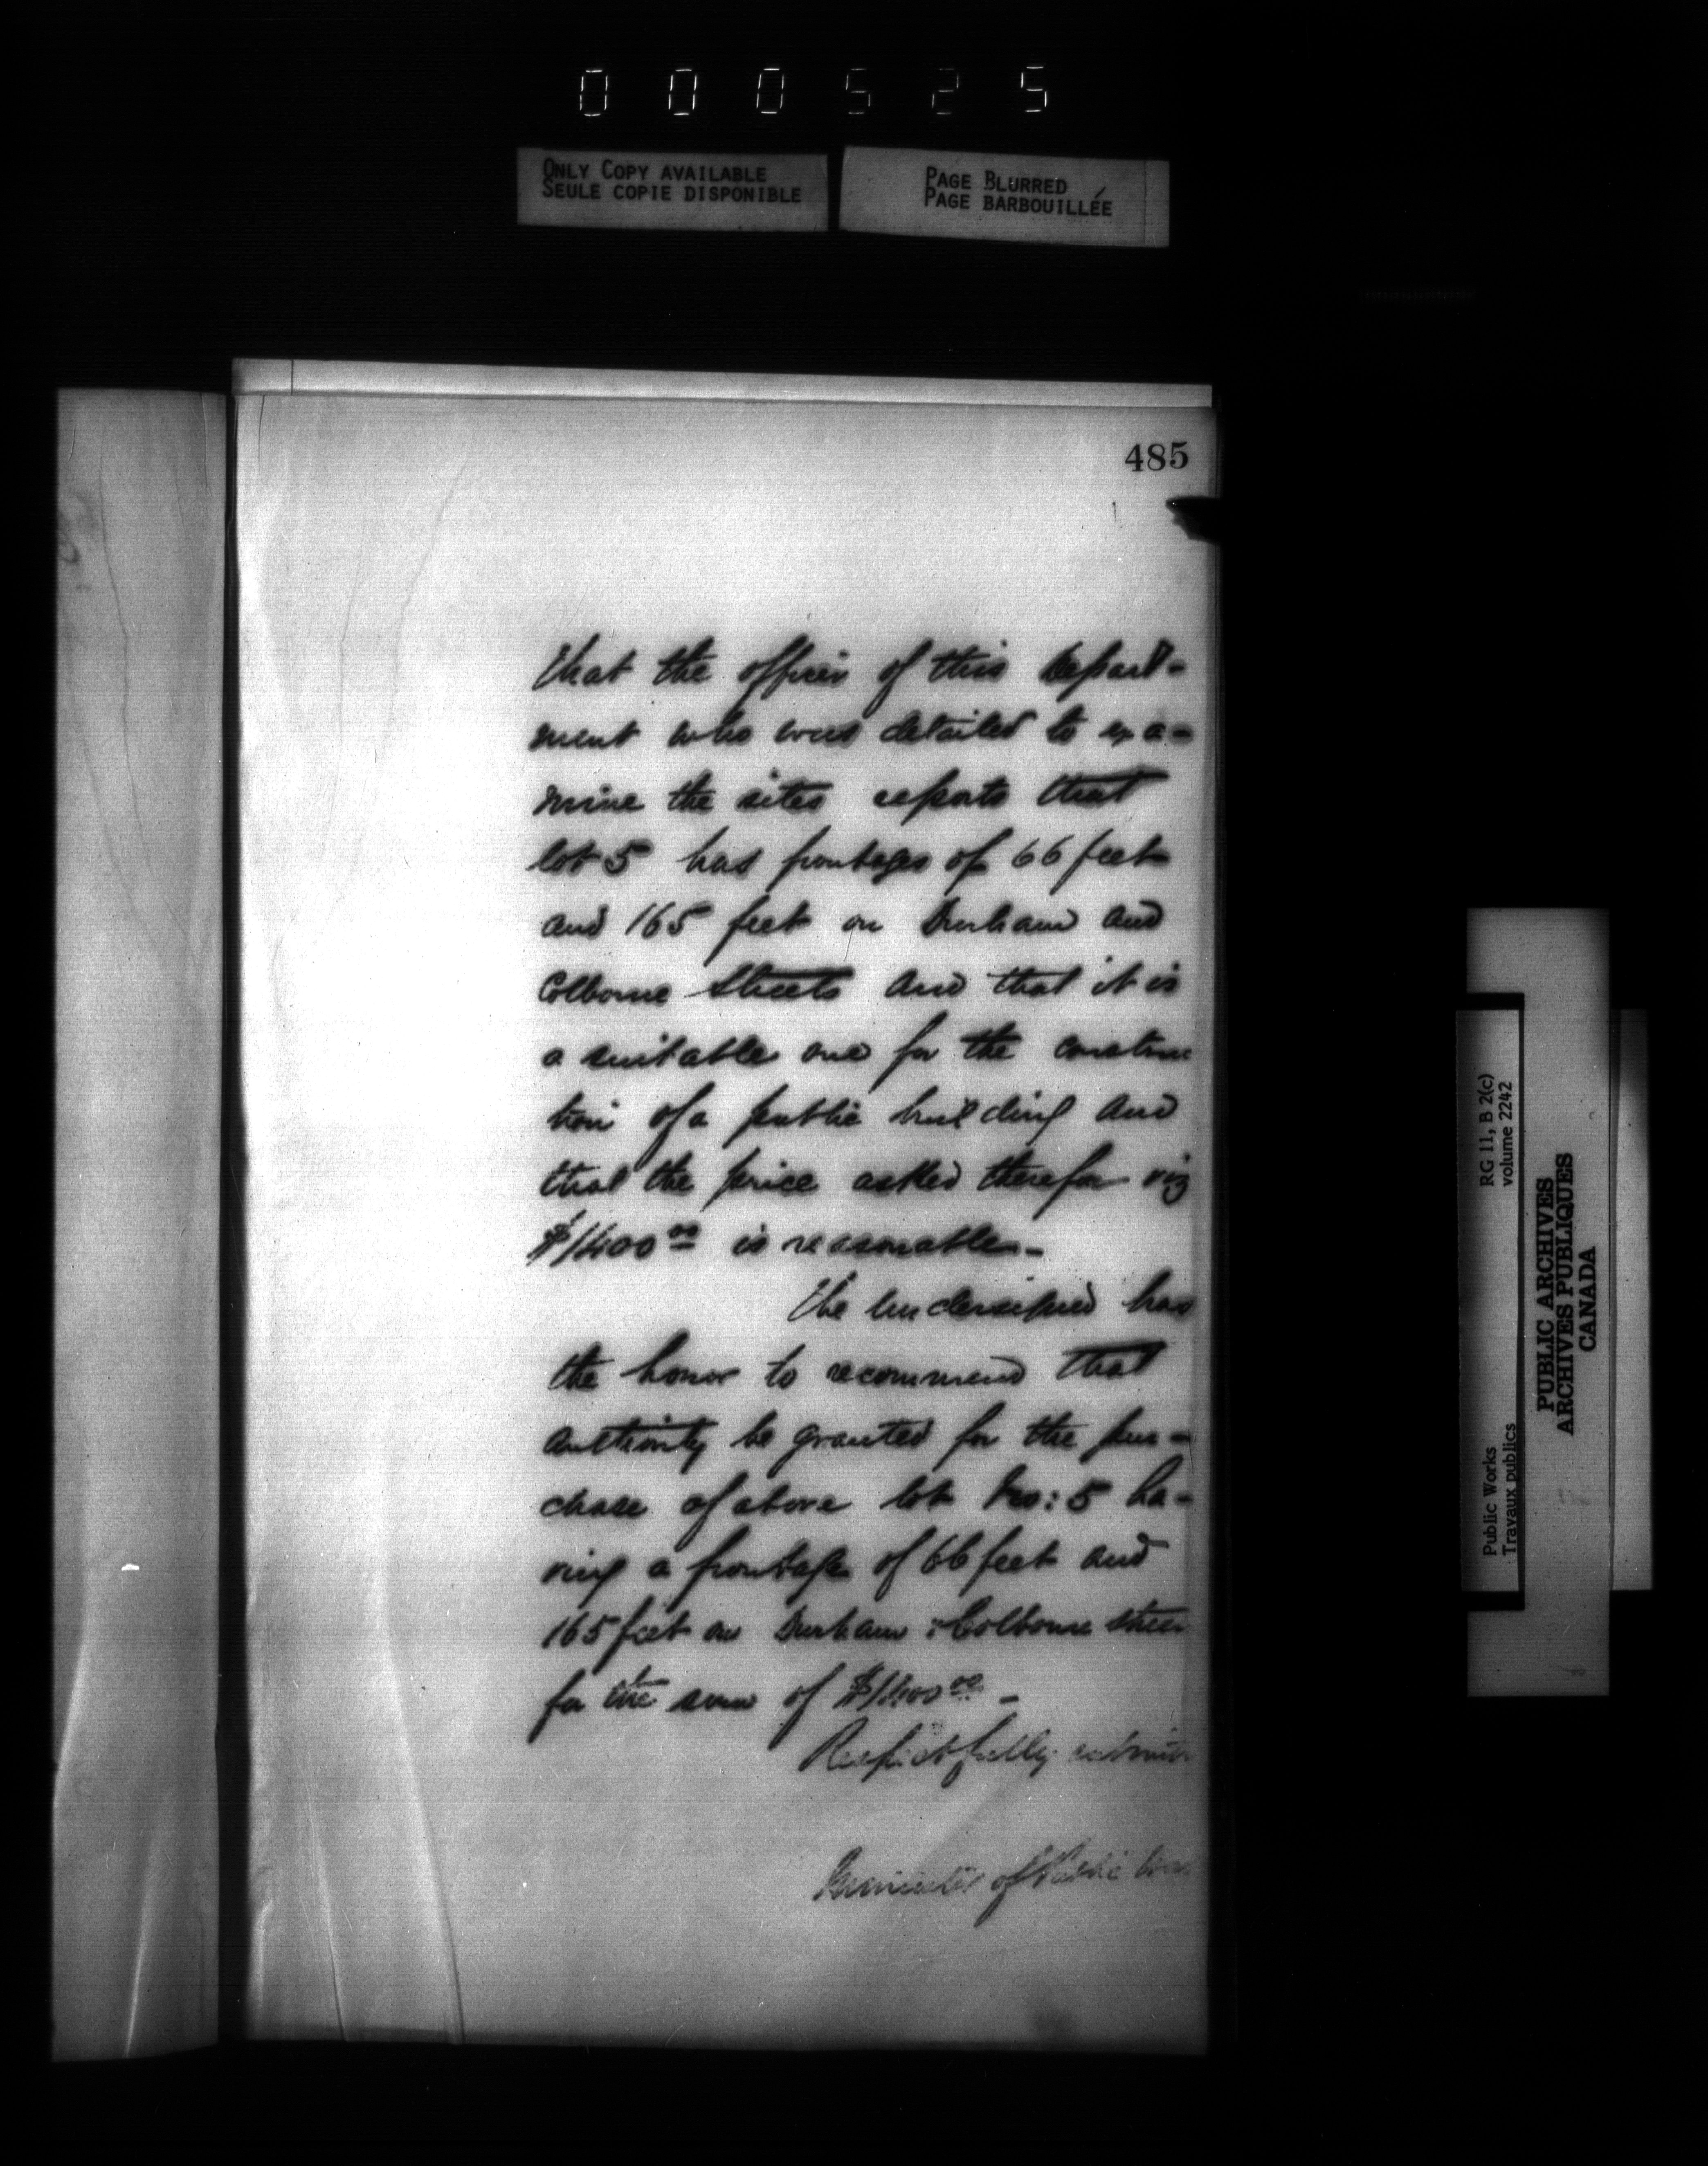 000525
ONLY COPY AVAILABLE
SEULE COPIE DISPONIBLE
PAGE BLURRED
PAGE BARBOUILLÉE
485
that the officer of this Depart-
ment who was detailed to exa-
mine the sites reports that
lot 5 has frontages of 66 feet
and 165 feet on Durham and
Colborne Streets and that it is
a suitable one for the construc
tion of a public building and
that the price asked therefor viz
$1400.00 is reasonable.-
The undersigned has
the honor to recommend that
authority be granted for the pur-
chase of above lot No: 5 ha-
ving a frontage of 66 feet and
165 feet on Durham & Colborne
for the sum of $1400.00 -
Respectfully
Minister of Public
RG 11, B 2(c)
volume 2242
Public Works
Travaux publics
PUBLIC ARCHIVES
ARCHIVES PUBLIQUES
CANADA